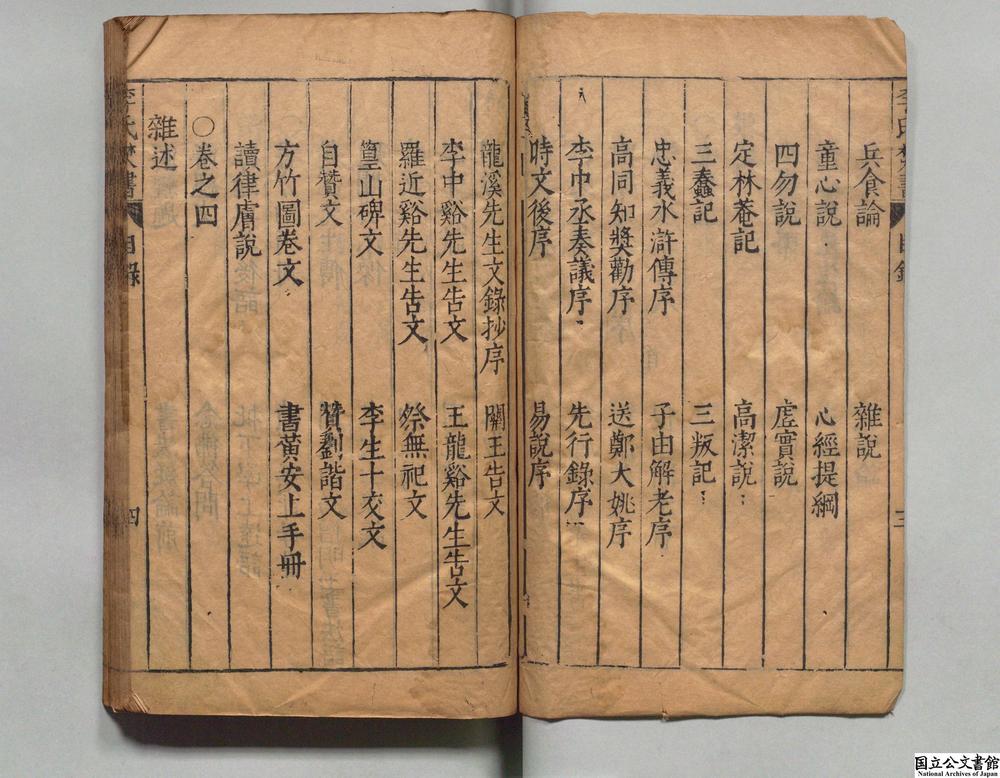 兵食論 雜說
童心說 心經提綱
四勿說 虛實說
定林菴記 高潔說
三蠢記 三叛記
忠義水滸傳序 子由解老序
高同知獎勸序 送鄭大姚序
李中丞奏議序 先行錄序
時文後序 易說序
龍溪先生文錄抄序 關王告文
李中谿先生告文 王龍谿先生告文
羅近谿先生告文 祭無祀文
篁山碑文 李生十交文
自贊文 贊劉諧文
方竹圖卷文 書黃安上手冊
讀律膚說
○卷之四
雜述
李氏焚書 目錄 四
目錄 三
国立公文書館
National Archives of Japan